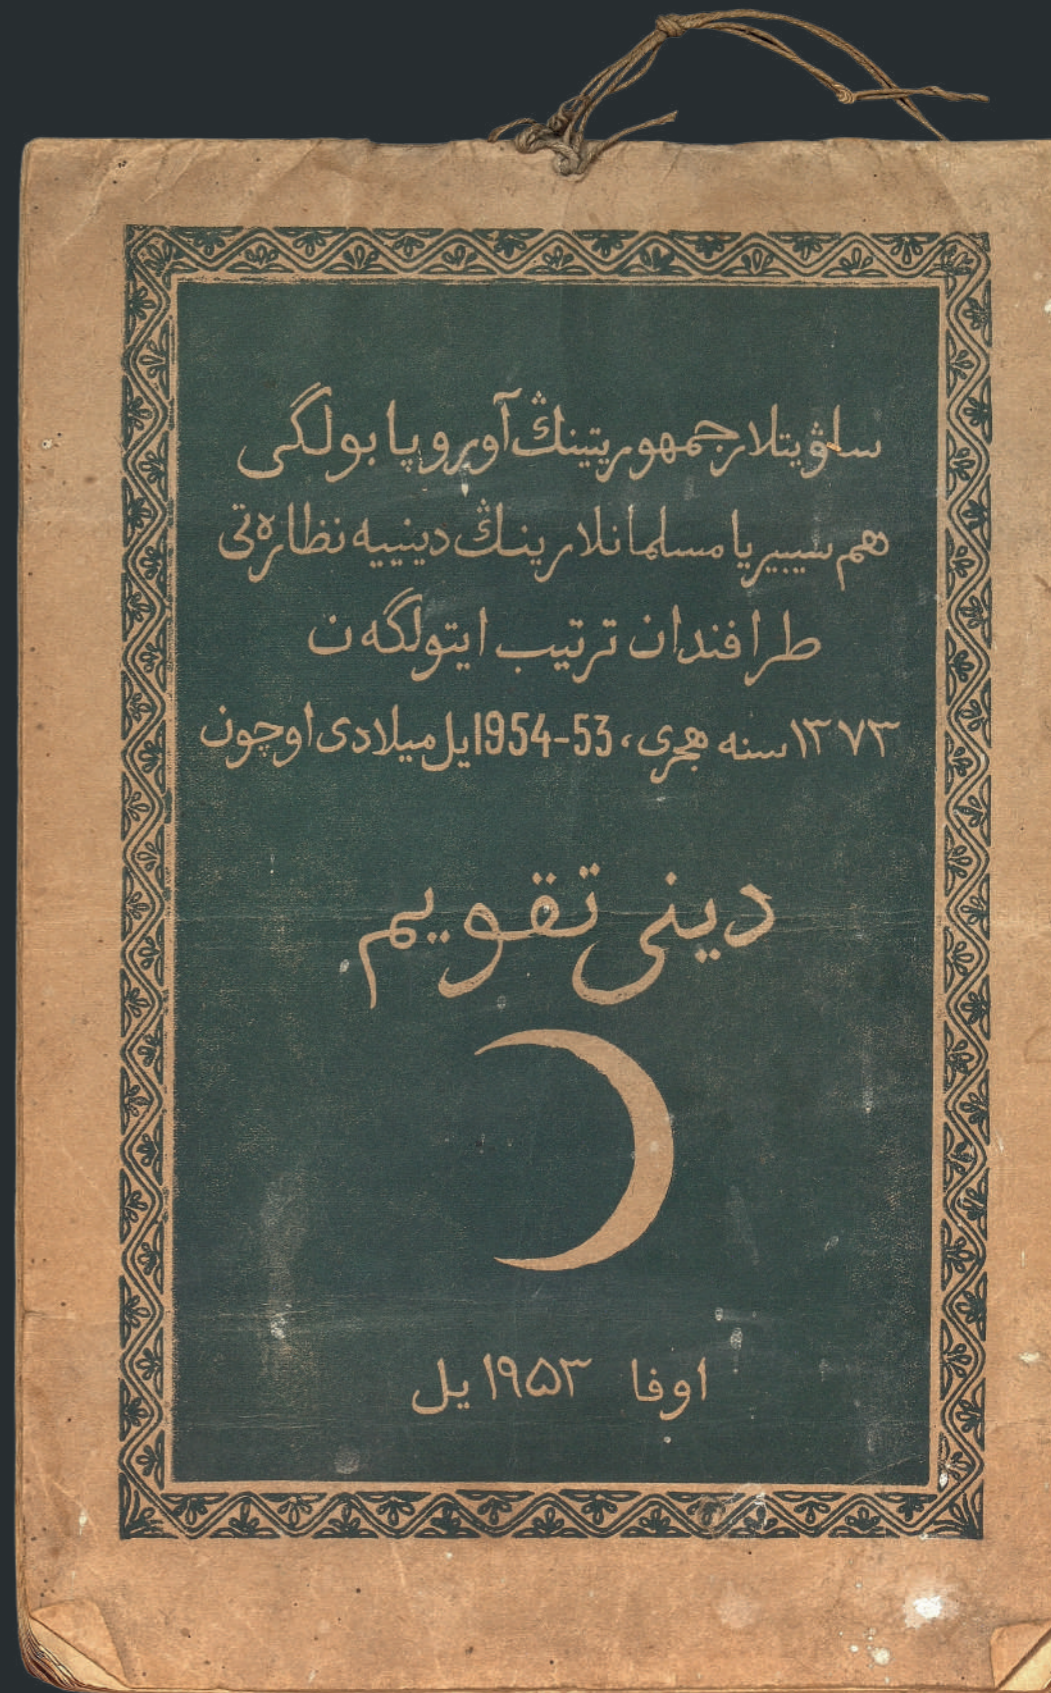 ساۋيتلار جمهوريتينڭ آوروپا بولگى
هم سيبيريا مسلمانلارينڭ دينييه نظارەتى
طرافندان ترتيب ايتولگەن
١٣٧٣ سنه هجرى، 53-1954 يل ميلادى اوچون
دينى تقويم
اوفا ١٩۵٣ يل